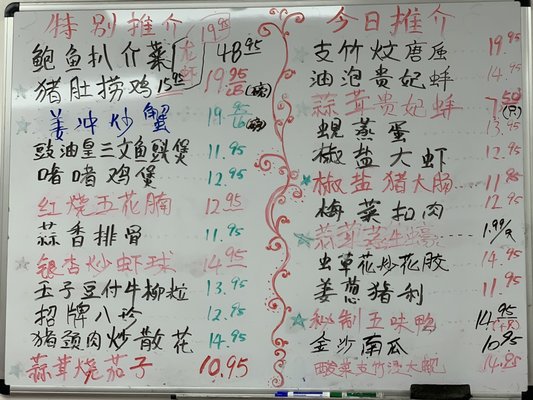 特别推介
鲍鱼扒什菜 48.95
猪肚捞鸡 15.95 19.95
姜冲炒蟹 19.95
豉油皇三文鱼头煲 11.95
啫啫鸡煲 12.95
红烧五花腩 12.95
蒜香排骨 11.95
银杏炒虾球 14.95
玉子豆付牛柳粒 13.95
招牌八珍 12.95
猪颈肉炒散花 14.95
蒜茸烧茄子 10.95
今日推介
支竹炆唐虱 19.95
油泡贵妃蚌 14.95
蒜茸贵妃蚌 7.50(只)
蚬蒸蛋 13.95
椒盐大虾 12.95
椒盐猪大肠 11.95
梅菜扣肉 12.95
蒜茸蒸生蠔 1.99/只
虫草花炒花胶 14.95
姜葱猪利 11.95
秘制五味鸭 14.95
金沙南瓜 10.95
酸菜支竹浸大虾 14.95